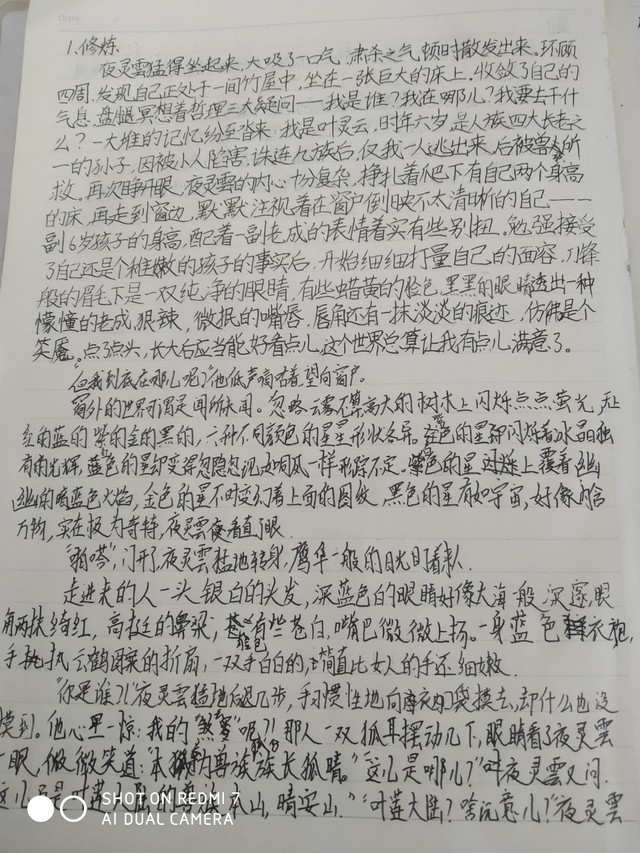 1.修炼
夜灵雲猛得坐起来,大吸了一口气,肃杀之气顿时散发出来。环顾
四周,发现自己正处于一间竹屋中,坐在一张巨大的床上,收敛了自己的
气息,盘腿冥想着哲理三大疑问——我是谁?我在哪儿?我要去干什
么?一大堆的记忆纷至沓来:我是叶灵云,时年六岁,是人族四大长老之
一的孙子,因被小人陷害,诛连九族后,仅我一人逃出来,后被兽人所
救。再次睁开眼,夜灵雲的内心十分复杂,挣扎着爬下有自己两个身高
的床,再走到窗边,默默注视着在窗户倒映不太清晰的自己——一
副6岁孩子的身高,配着一副老成的表情着实有些别扭。勉强接受
了自己还是个稚嫩的孩子的事实后,开始细细打量自己的面容,刀锋
般的眉毛下是一双纯净的眼睛,有些蜡黄的脸色,黑黑的眼睛透出一种
懞懂的老成,狠辣,微抿的嘴唇,唇角还有一抹淡淡的痕迹,仿佛是个
笑魇。点了点头,长大后应当能好看点儿,这个世界总算让我有点儿满意了。
但我到底在哪儿呢?他低声嘀咕着望向窗户。
窗外的世界可谓是闻所未闻。忽略云雾不算高大的树木上闪烁点点萤光,
红的蓝的紫的金的黑的,六种不同颜色的星星形状各异。色的星却闪烁着冰晶独
有的光辉,蓝色的星却变得忽隐忽现如同风一样形踪不定。紫色的星闪烁上覆着丝
丝的暗蓝色火焰,金色的星不时变幻着上面的图纹,黑色的星有如宇宙,好像内含
万物,实在极为奇特,夜灵雲看直了眼。
"嗒",门开了,夜灵雲猛地转身,鹰隼一般的目光盯着来人
走进来的人一头银白的头发,深蓝色的眼睛好像大海一般深邃,眼
角两抹绮红,高挺的鼻梁,脸色有些苍白,嘴巴微微上扬。一身蓝色衣袍,
手执云鹤图案的折扇,一双手白白的,简直比女人的手还细嫩。
"你是谁?!"夜灵雲猛地后退几步,手习惯性地向内口袋摸去,却什么也没
摸到。他心里一惊:我的"煞蜜"呢?!那人一双狐耳摆动几下,眼睛看了夜灵雲
一眼,微微笑道:"本狐为兽族族长狐晴。""这儿是哪儿?"叶夜灵雲又问.
这儿是叶莲大陆的兽族本山,晴安山.""叶莲大陆?啥玩意儿?"夜灵雲
SHOT ON REDMI 7
AI DUAL CAMERA